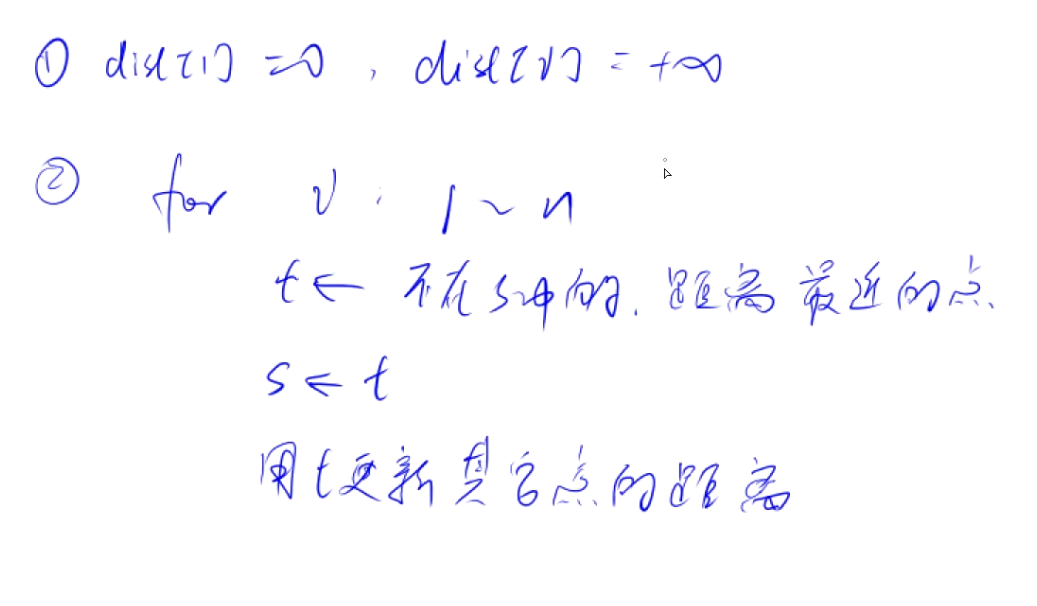 ① dist[1] = 0, dist[v] = +∞
② for v: 1 ~ n
t ← 不在s中的,距离最近的点
s ← t
用t更新其它点的距离